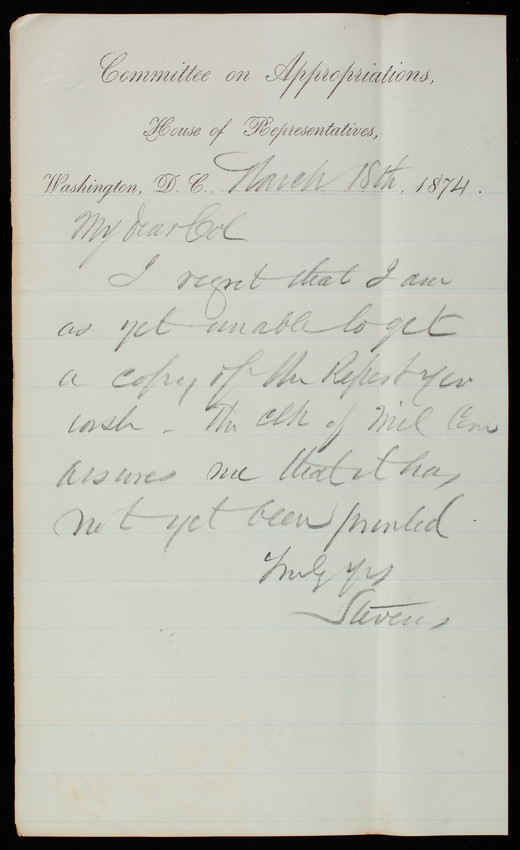 Committee on Appropriations,
House of Representatives,
Washington, D. C., March 18th, 1874.
My dear Col
I regret that I am
as yet unable to get
a copy of the Report you
wish - The clk of Mil Com
assures me that it has
not yet been printed
Truly yrs
Stevens